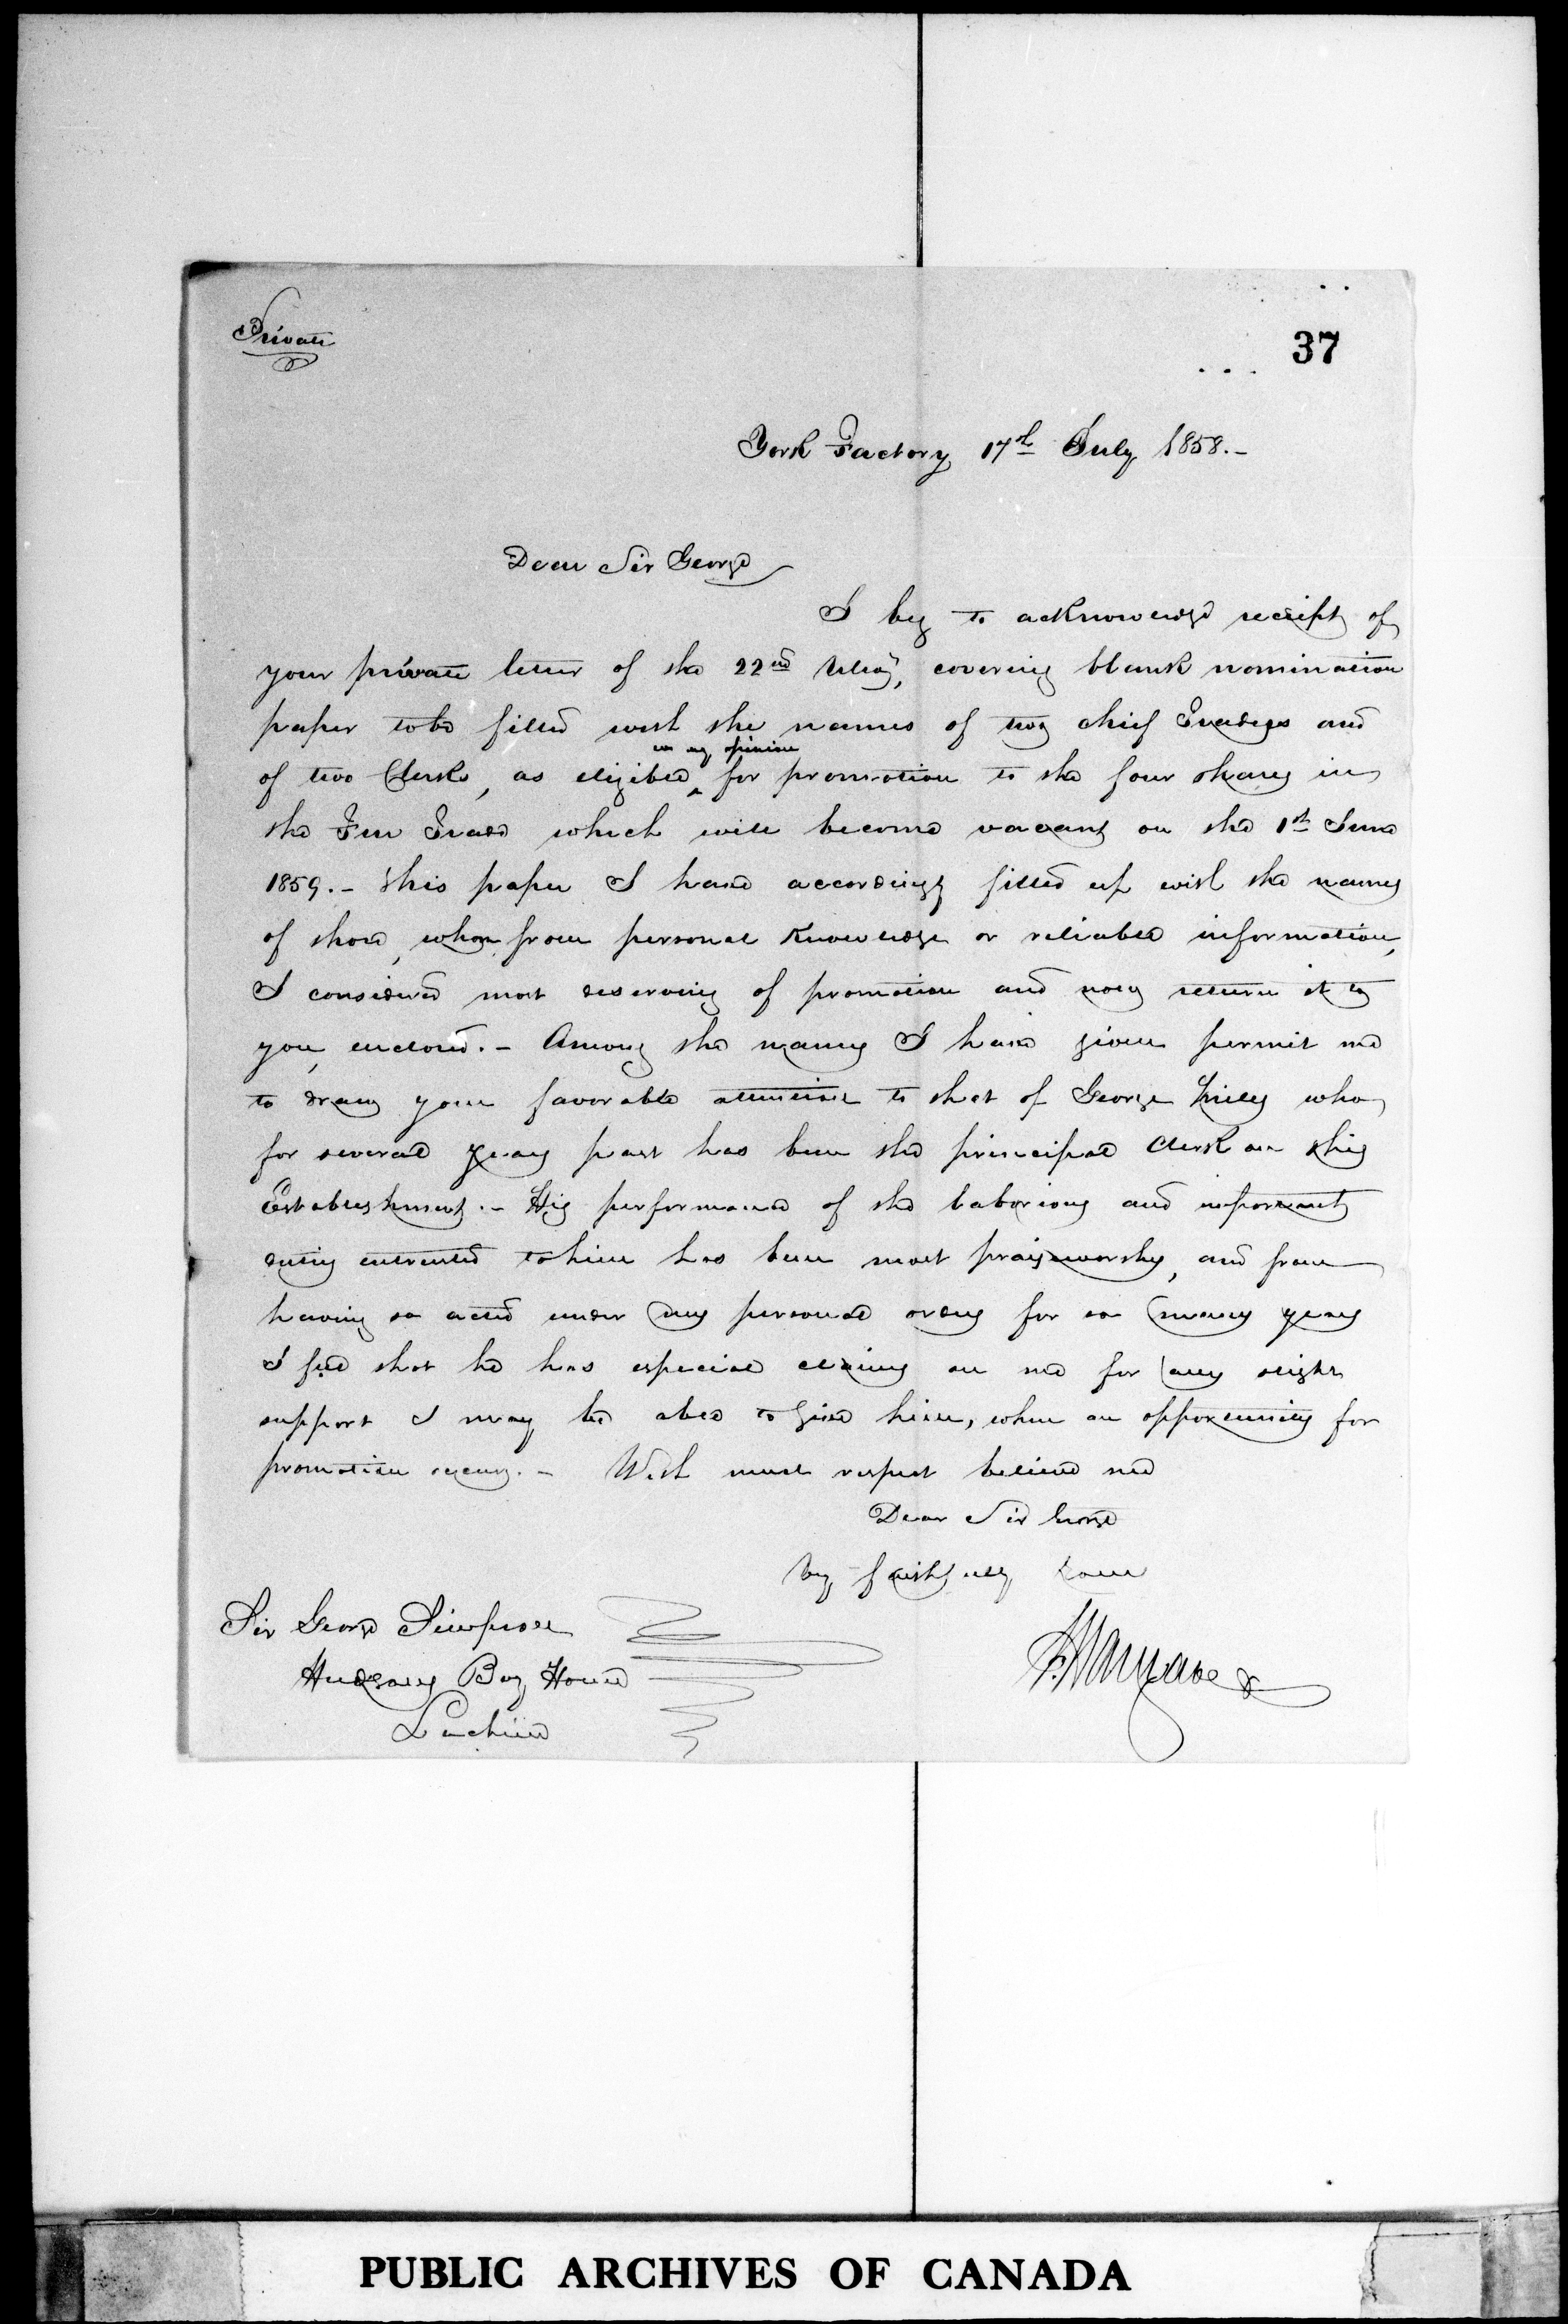 Private
37
York Factory 17th July 1858.-
Dear Sir George
I beg to acknowledge receipt of
your private letter of the 22nd May, covering blank nomination
paper to be filled with the names of two chief Traders and
in my opinion
of two Clerks, as eligible ^ for promotion to the four shares in
the Fur Trade which will become vacant on the 1st June
1859.- This paper I have accordingly filled up with the names
of those, whom from personal knowledge or reliable information,
I considered most deserving of promotion and now return it to
you, enclosed.- Among the names I have given permit me
to draw your favorable attention to that of George who
for several years past has been the principal Clerk at this
Establishment.- His performance of the laborious and important
duties entrusted to him has been most praiseworthy, and from
having so acted under my personal orders for so many years
I feel that he has especial claims on me for any slight
support I may be able to give him, when an opportunity for
promotion occurs.- With much respect believe me
Dear Sir George
Very faithfully Yours
J. Hargrave
Sir George Simpson
Hudsons Bay House
Lachine
PUBLIC ARCHIVES OF CANADA